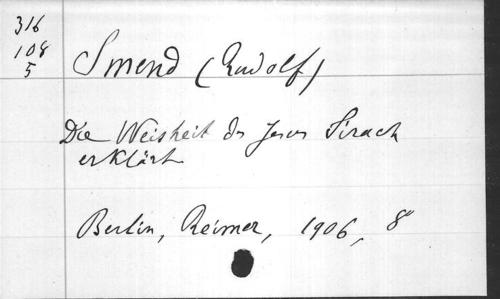 316
108
5
Smend (Rudolf)
Die Weisheit ds Jesus Sirach
erklärt
Berlin, Reimer, 1906, 8°